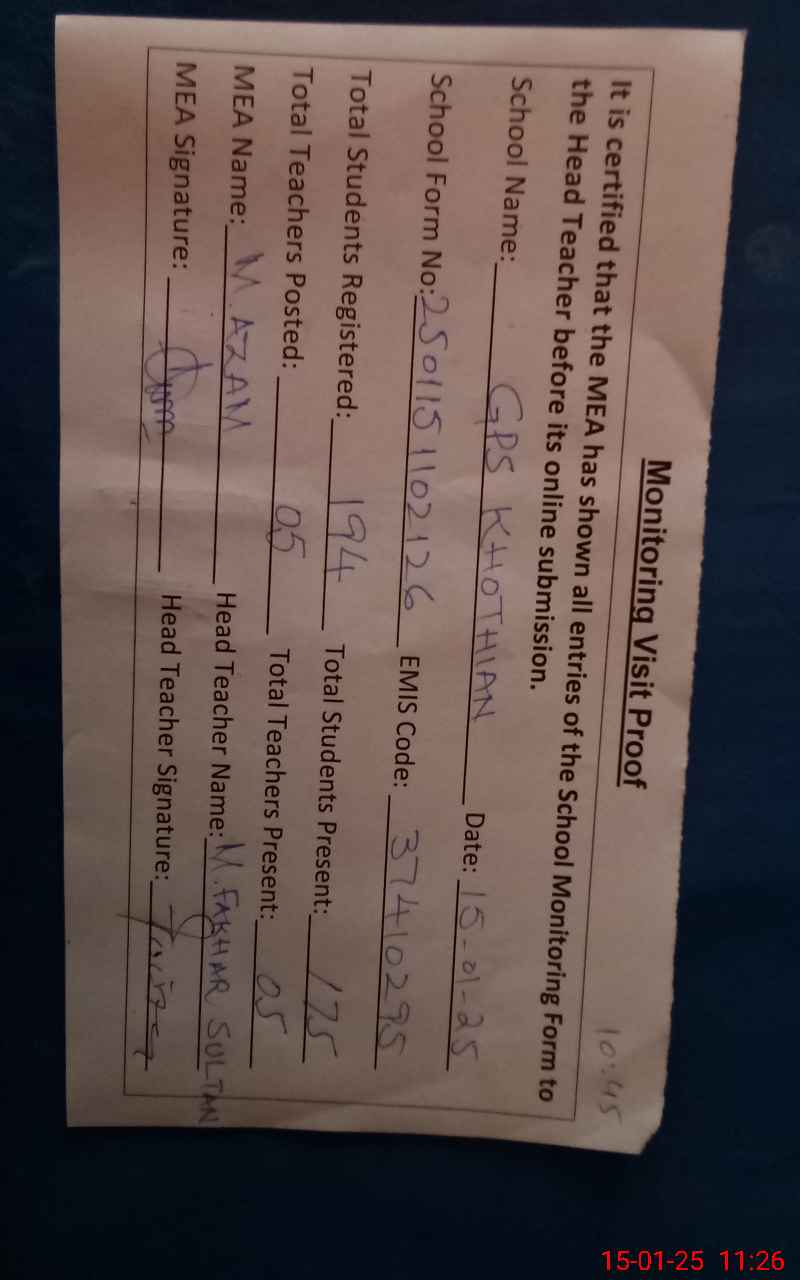 10:45
Monitoring Visit Proof
It is certified that the MEA has shown all entries of the School Monitoring Form to
the Head Teacher before its online submission.
School Name: GPS KHOTHIAN Date: 15-01-25
School Form No: 2501151102126 EMIS Code: 37410295
Total Students Registered: 194 Total Students Present: 175
Total Teachers Posted: 05 Total Teachers Present: 05
MEA Name: M. AZAM Head Teacher Name: M. FAKHAR SULTAN
MEA Signature: Head Teacher Signature:
15-01-25 11:26